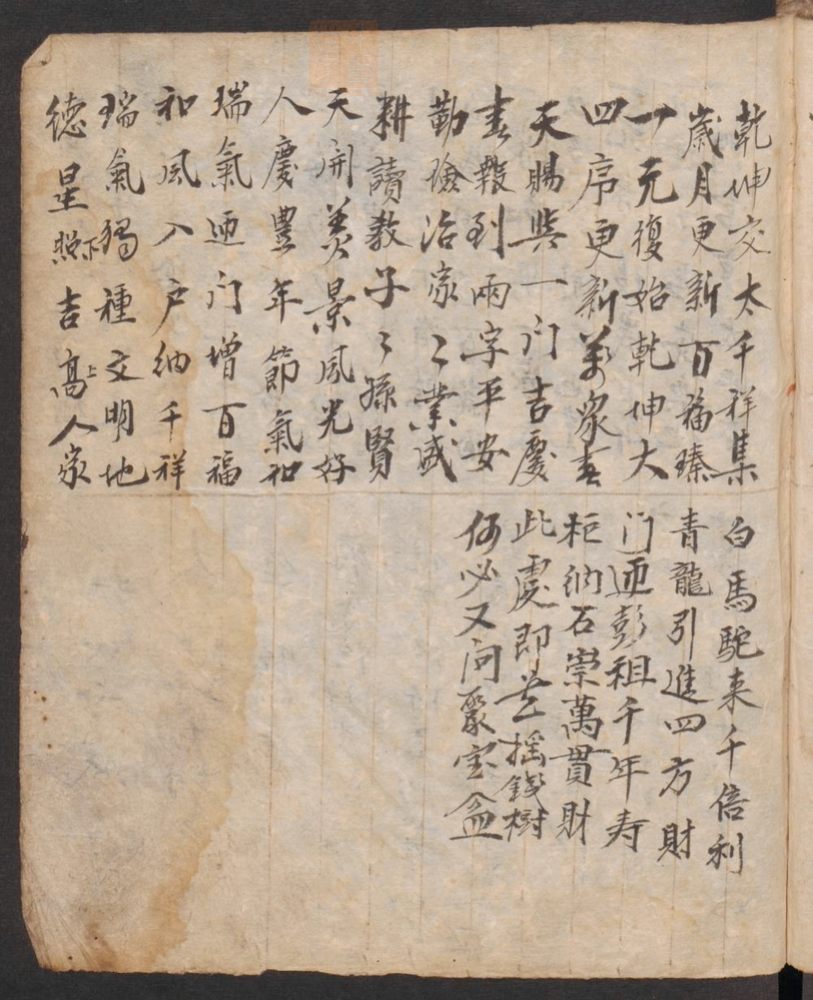 乾坤交太千祥集
歲月更新百福臻
一元復始乾坤大
四序更新萬象春
天賜與一门吉慶
春報到兩字平安
勤險治家〻業盛
耕讀教子〻孫賢
天開美景風光好
人慶豊年節氣和
瑞氣迊门增百福
和風入户納千祥
瑞氣獨種文明地
德星照下吉高上人家
白馬駝来千倍利
青龍引進四方財
门迊彭祖千年寿
柜納石崇萬貫財
此處即是揺錢樹
何必又问聚宝盆